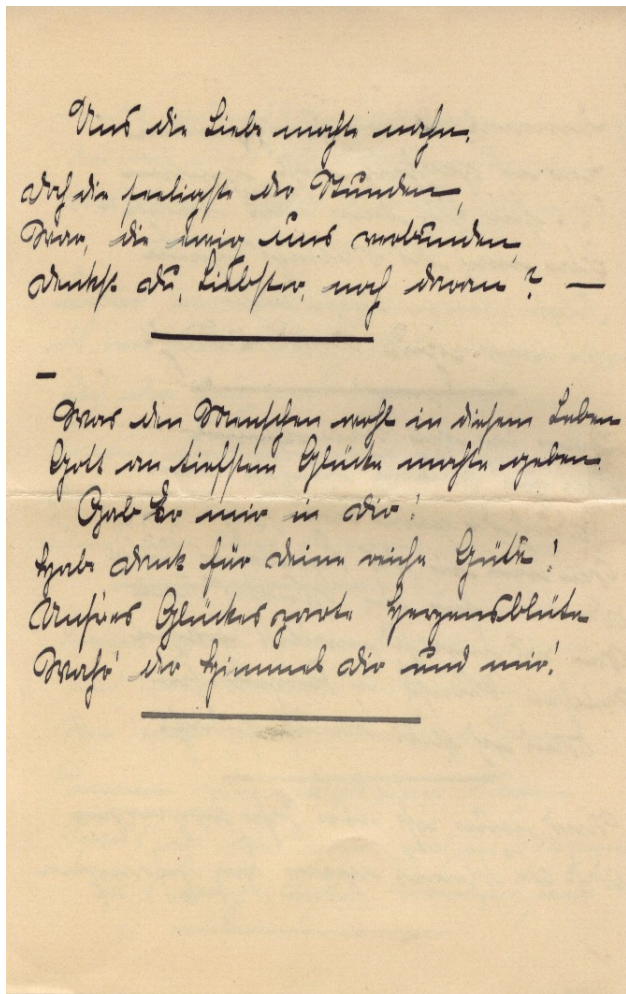 Uns die Liebe machte nahn,
doch die seeligste der Stunden,
War, die ewig uns verbunden,
denkst du, Liebster, noch daran? —
Was den Menschen recht in diesem Leben
Gott an tiefstem Glücke mochte geben
Gab Er mir in dir!
Habe dank für deine reiche Güte!
Unsres Glückes zarte Herzensblüte
Wahr' der Himmel dir und mir!